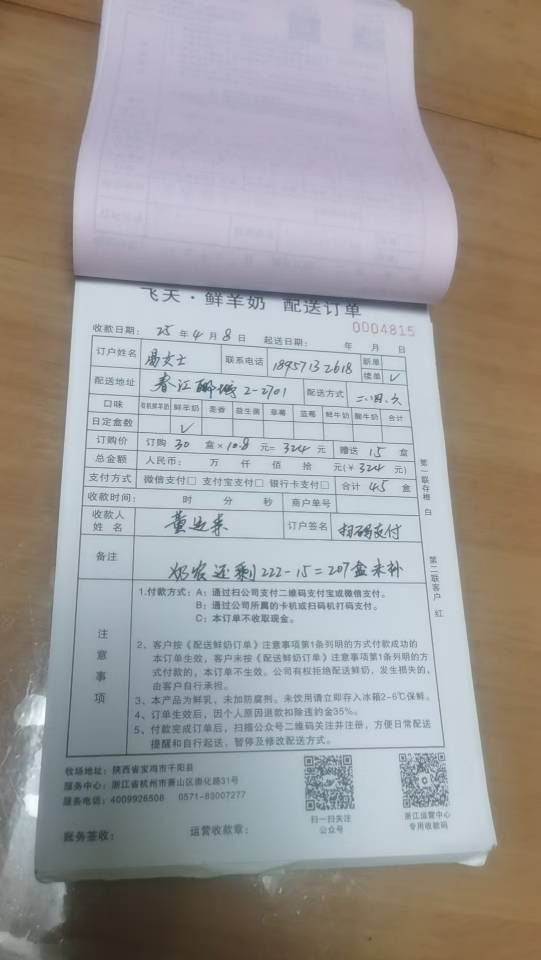 飞天·鲜羊奶 配送订单
0004815
收款日期: 25 年 4 月 8 日 起送日期: 年 月 日
订户姓名 女士 联系电话 18957132618 新单
续单 ✓
配送地址 春江 2-2701 配送方式 二.四.六
口味 有机鲜羊奶 鲜羊奶 益生菌 草莓 蓝莓 鲜牛奶 酸牛奶 合计
日定盒数 ✓
订购价 订购 30 盒×10.8 元= 324 元 赠送 15 盒
总金额 人民币: 万 仟 佰 拾 元(¥ 324 元)
支付方式 微信支付□ 支付宝支付□ 银行卡支付□ 合计 45 盒
收款时间: 时 分 秒 商户单号
收款人姓名 黄 订户签名 扫码支付
备注 奶农还剩222-15=207盒未补
第一联存根 白
第二联客户 红
注意事项
1.付款方式: A: 通过扫公司支付二维码支付宝或微信支付。
B: 通过公司所属的卡机或扫码机打码支付。
C: 本订单不收取现金。
2、客户按《配送鲜奶订单》注意事项第1条列明的方式付款成功的
本订单生效, 客户未按《配送鲜奶订单》注意事项第1条列明的方
式付款的, 本订单不生效。公司有权拒绝配送鲜奶, 发生损失的,
由客户自行承担。
3、本产品为鲜乳, 未加防腐剂。未饮用请立即存入冰箱2-6℃保鲜。
4、订单生效后, 因个人原因退款扣除违约金35%。
5、付款完成订单后, 扫描公众号二维码关注并注册, 方便日常配送
提醒和自行起送, 暂停及修改配送方式。
牧场地址: 陕西省宝鸡市千阳县
服务中心: 浙江省杭州市萧山区崇化路31号
服务电话: 4009926508 0571-83007277
扫一扫关注
公众号
浙江运营中心
专用收款码
账务签收: 运营收款章: